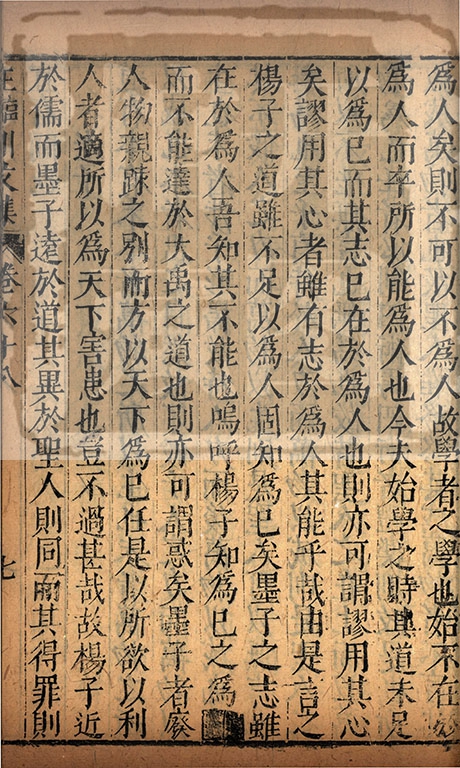 爲人矣則不可以不爲人故學者之學也始不在
爲人而卒所以能爲人也今夫始學之時其道未足
以爲已而其志已在於爲人也則亦可謂謬用其心
矣謬用其心者雖有志於爲人其能乎哉由是言之
楊子之道雖不足以爲人固知爲已矣墨子之志雖
在於爲人吾知其不能也嗚呼楊子知爲已之爲
而不能達於大禹之道也則亦可謂惑矣墨子者廢
人物親踈之别而方以天下爲已任是以所欲以利
人者適所以爲天下害患也豈不過甚哉故楊子近
於儒而墨子遠於道其異於聖人則同而其得罪則
王臨川文集 卷六十八 七